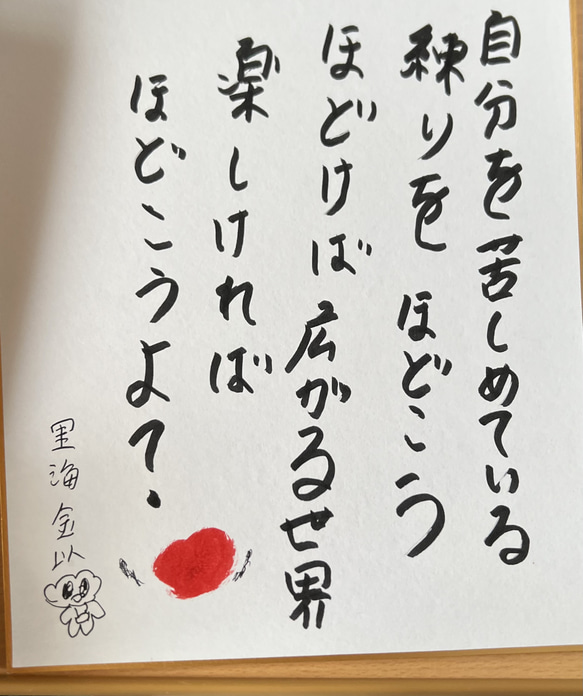 自分を苦しめている
練りをほどこう
ほどけば広がる世界
楽しければ
ほどこうよ？
里海金以